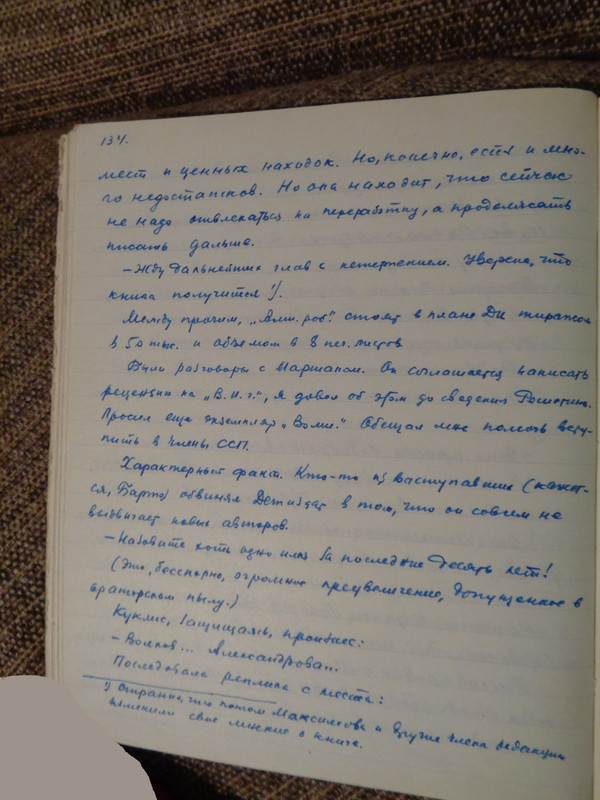 134.
мест и ценных находок. Но, конечно, есть и мно-
го недостатков. Но она находит, что сейчас
не надо отвлекаться на переработку, а продолжать
писать дальше.
– Жду дальнейших глав с нетерпением. Уверена, что
книга получится ¹).
Между прочим, „Алт. роб." стоят в плане ДИ тиражом
в 50 тыс. и объемом в 8 печ. листов
Были разговоры с Маршаком. Он соглашается написать
рецензию на „В. и г.", я довел об этом до сведения
Просил еще экземпляр „Волш." Обещал мне помочь всту-
пить в члены ССП.
Характерный факт. Кто-то из выступавших (кажет-
ся, Барто) обвинял Детиздат в том, что он совсем не
выдвигает новых авторов.
– Назовите хоть одно имя за последние десять лет!
(Это, бесспорно, огромное преувеличение, допущенное в
ораторском пылу.)
Куклис, защищаясь, произнес:
– Волков... Александрова...
Последовала реплика с места:
¹) Странно, что потом Максимова и другие члены редакции
изменили свое мнение о книге.